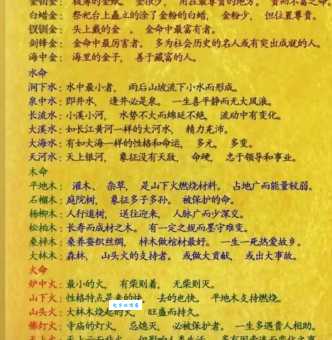 白蜡金：祭祀台上矗立的涂了金粉的白蜡，金粉少，但位置尊贵。
钗钏金：头上戴的金，金命中最富有者。
剑锋金：金命中最厉害者，多为社会历史的名人或有突出成就的人。
海中金：海里的金子，善于藏富的人。
水命
涧下水：水中最小者，雨后山坡流下小水而形成。
泉中水：即井水，逢井必是泉。一生喜平静而无大风浪。
长流水：小溪小河，水势不大而绵延不绝，流动中有变化。
大溪水：如长江黄河一样的大河水，精力充沛。
大海水：有如大海一样的性格和命运，多元，多变。
天河水：天上银河，象征没有天敌，命硬，忠于领导和事业。
木命
平地木：灌木、杂草，是山下火燃烧材料。占地广而能量较弱。
石榴木：庭院树，象征多子多孙，被保护的命。
杨柳木：人行道树，送往迎来，人脉广而少深交。
松柏木：长寿而成材之木，有一定之规而墨守难变。
桑柘木：桑养蚕织丝绸，柘木做棺材最好。一生一死热爱故乡。
大林木：森林，山头火的支持者，或做大贡献，或出大事故。
火命
炉中火：最小的火，有柴则着，无柴则灭。
山下火：性格特点是来的快，去的也快，平地木支持燃烧。
山头火：大林木烧起的火，旺盛而持久。
佛灯火：寺庙的灯火，忌熄灭，必被保护者，一生多遇贵人相助。